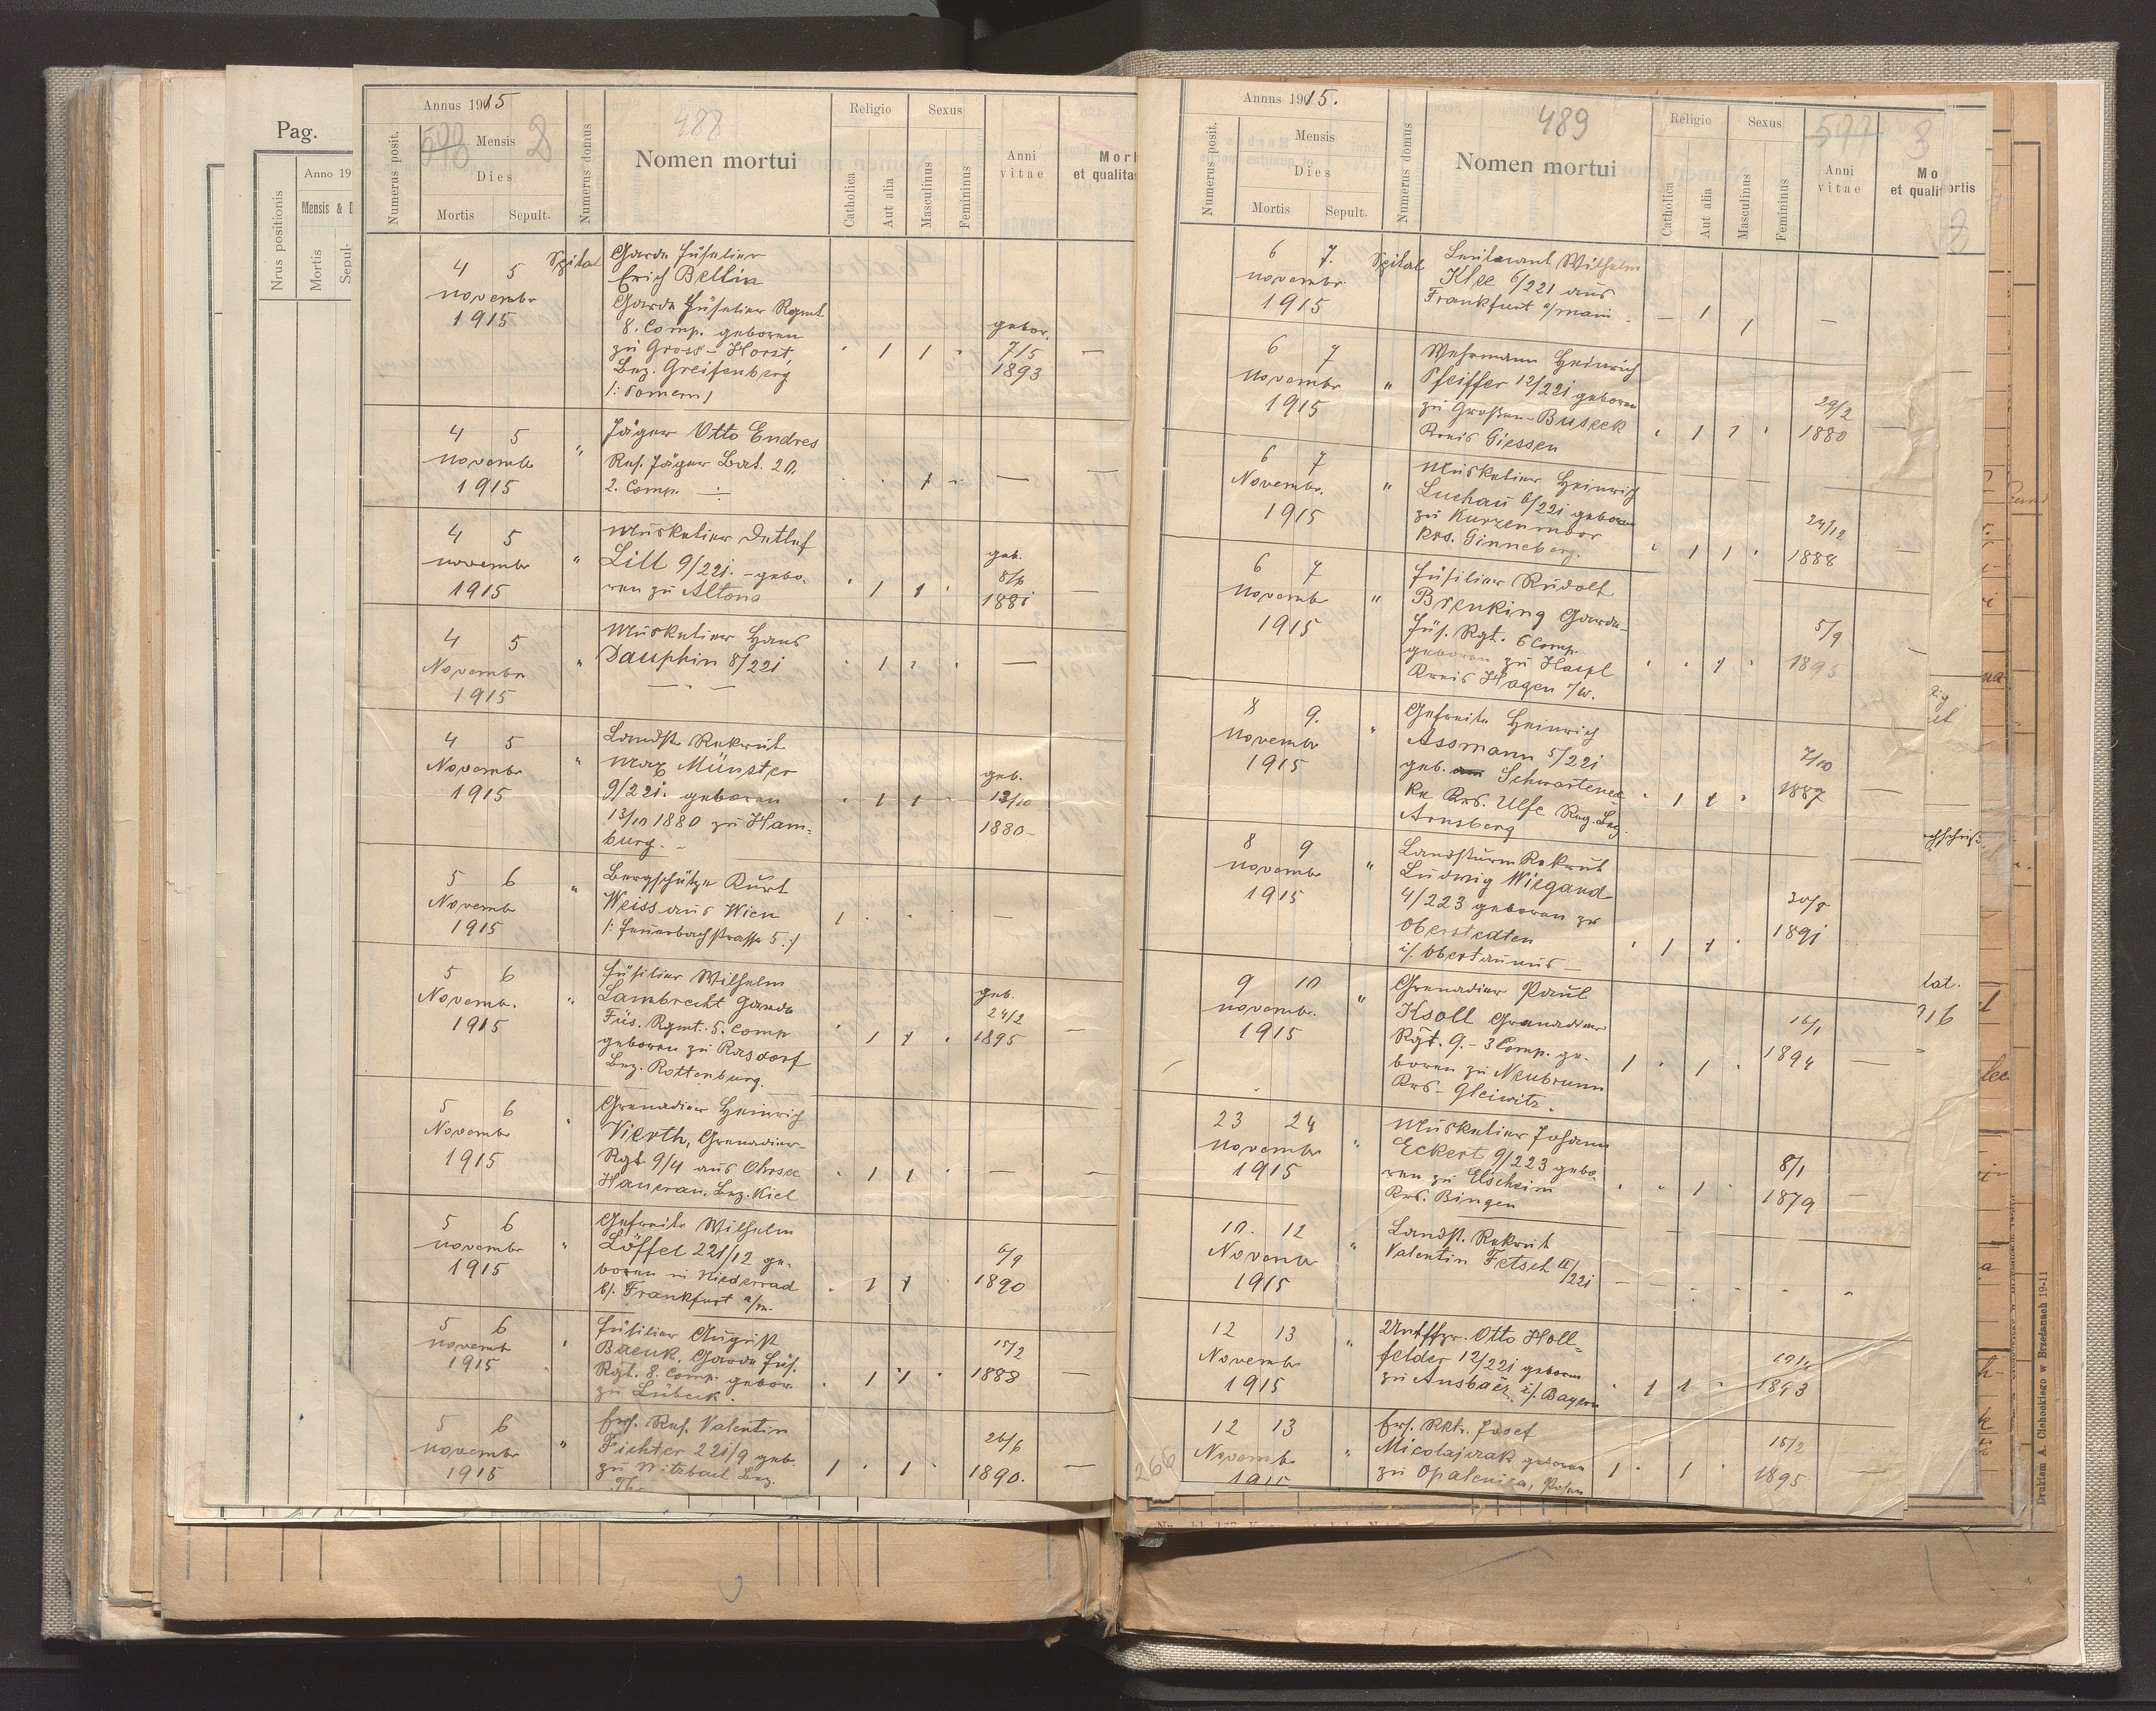 Pag.
Anno 19
Mensis & D
Nrus positionis
Mortis
Sepul-
Annus 1915
488
Religio
Sexus
500
Mensis
2
Numerus posit.
Numerus domus
Nomen mortui
Anni
vitae
Mor
et qualita
Dies
Mortis
Sepult.
Catholica
Aut alia
Masculinus
Femininus
4 5 Spital Garde Füsilier
novembr Erich Bellin
1915 Garde Füselier Rgmt
8. Comp. geboren gebor.
zu Gross-Horst, 1 1 7/5 —
Bez. Greifenberg 1893
/: Pomern /
4 5 " Jäger Otto Endres
novemb Res. Jäger Bat. 20.
1915 2. Comp. 1 — —
4 5 Musketier Detlef
novembr " Lill 9/221. - gebo- geb.
1915 ren zu Altona 1 1 8/6 —
1881
4 5 Musketier Hans
Novembr " Dauphin 8/221 1 1 —
1915
4 5 Landst. Rekrut
Novembr " Max Münster geb.
1915 9/221. geboren 1 1 13/10
13/10 1880 zu Ham= 1880-
burg. -
5 6 " Bergschütze Kurt
Novemb Weiss aus Wien 1 —
1915 /: Feuerbachstrasse 5. :/
5 6 Füsilier Wilhelm
Novemb. " Lambrecht Garde geb.
1915 Füs. Rgmt. 5. Comp 24/2
geboren zu Rasdorf 1 1 1895 —
Bez. Rottenburg.
5 6 Grenadier Heinrich
Novemb " Vierth, Grenadier-
1915 Rgt 9/4 aus Ohrsee 1 1 — —
Hanerau, Bez. Kiel
5 6 Gefreite Wilhelm
novembr " Löffel 221/12 ge- 6/9
1915 boren in Niederrad 1 1 1890
b/. Frankfurt a/m.
5 6 Füsilier August
novemb " Baeuk, Garde Füs. 15/2
1915 Rgt. 8. Comp. gebor. 1 1 1888 —
zu Lübeck.
5 6 Ers. Res. Valentin
novembr " Fichter 221/9 geb. 26/6
1915 zu Witzbach Bez. 1 1 1890. —
Annus 1915.
489
Religio
Sexus
507
3
Mensis
Numerus posit.
Numerus domus
Nomen mortui
Anni
vitae
Mo
et qualit
ortis
Dies
Mortis
Sepult.
Catholica
Aut alia
Masculinus
Femininus
2
6 7. Spital Leutenant Wilhelm
novembr. Klee 6/221 aus
1915 Frankfurt a/main — 1 1 —
6 7 Wehrmann Heinrich
novembr " Pfeiffer 12/221 geboren 29/2
1915 zu Großen-Buseck 1 1 1880 —
Kreis Giessen
6 7 Musketier Heinrich
Novembr. " Luchau 6/221 geboren
1915 zu Kurzenmoor 24/12
Krs. Ginneberg. 1 1 1888 —
6 7 Füsilier Rudolf
novembr " Brenking Garde-
1915 Füs. Rgt. 6 Comp. 5/9
geboren zu Haspl 1 1895 —
Kreis Hagen i/w.
8 9. Gefreite Heinrich
novembr " Assmann 5/221 7/10
1915 geb. Schwartenec- 1 1 1887 —
ke Krs. Ulfe Reg. Bez.
Arnsberg
8 9 Landsturm Rekrut
novembr " Ludwig Wiegand
1915 4/223 geboren zu 30/8
Oberstedten 1 1 1891
i/. Obertaunus —
9 10 Grenadier Paul
novembr. " Ksoll Grenadier 16/1
1915 Rgt. 9.-3 Comp. ge- 1 1 1894 —
boren zu Neubrunn
Krs. Gleiwitz.
23 24 Musketier Johann
novembr " Eckert 9/223 gebo- 8/1
1915 ren zu Elsheim 1 1879 —
Krs. Bingen
10. 12 Landst. Rekrut
Novembr " Valentin Fetsch II/221
1915 —
12 13 Untffzr. Otto Holl=
Novembr " felder 12/221 geboren
1915 zu Ansbach i/. Bayern 1 1 1893
12 13 Ers. Rktr. Josef
Novemb " Micolajczak geboren 15/2
1915 zu Opalenica, Posen 1 1 1895 —
266
lat.
916
Drukiem A. Cichockiego w Brzeżanach 19-11